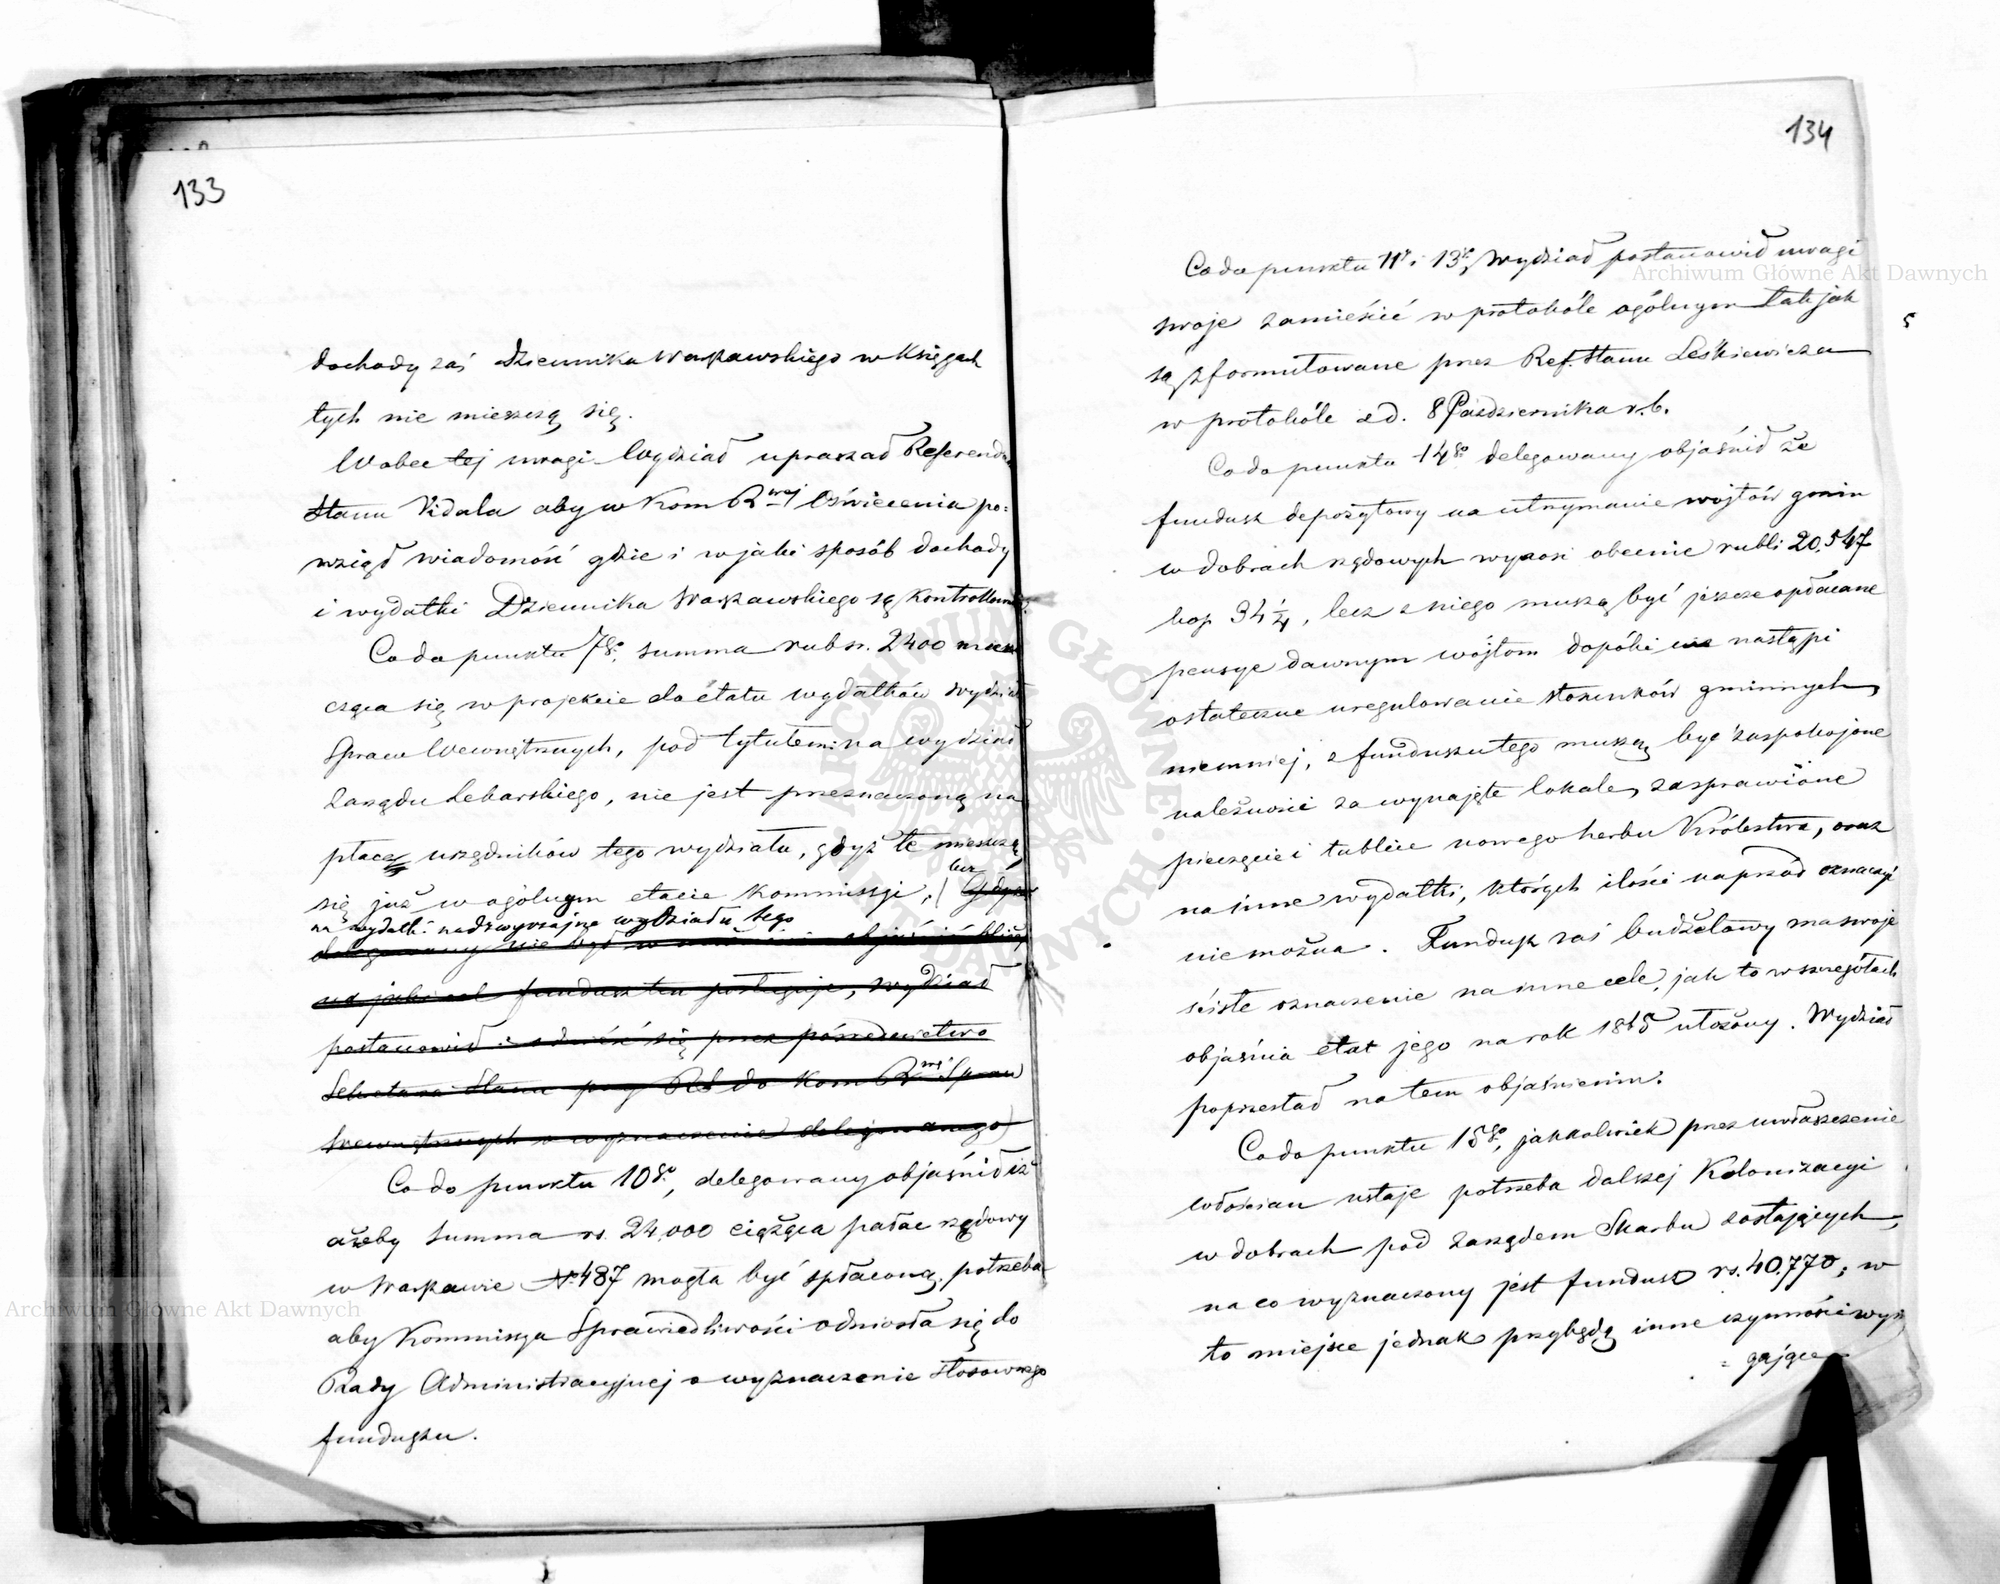 133
dochody zaś Dziennika Warszawskiego w księgach
tych nie mieszczą się.
Wobec tej uwagi Wydział upraszał Referenda
Stanu Vidala aby w Kom Rwej Oświecenia po=
wziął wiadomość gdzie i w jaki sposób dochody
i wydatki Dziennika Warszawskiego są kontrollowa
Co do punktu 7go, summa rubsr. 2400 miesz
cząca się w projekcie do etatu wydatków Wydział
Spraw Wewnętrznych, pod tytułem: na wydział
Zarządu Lekarskiego, nie jest przeznaczoną na
płacę urzędników tego wydziału, gdyż te mieszczą
się już w ogólnym etacie Kommissyi, lecz
na wydatki nadzwyczajne wydziału tego
delegowany nie był w objaśnić bliżej
na jaki cel fundusz ten posługuje, Wydział
postanowił odnieść się przez pośrednictwo
Sekretarza Stanu przy RS do Kom Rwej Spraw
Wewnętrznych o wyznaczenie delegowanego)
Co do punktu 10go, delegowany objaśnił iż
ażeby summa rs. 24,000 ciążąca pałac rządowy
w Warszawie No 487 mogła być spłaconą, potrzeba
aby Kommissya Sprawiedliwości odniosła się do
Rady Administracyjnej o wyznaczenie stosownego
funduszu.
134
Co do punktu 11go i 13go, Wydział postanowił uwagi
swoje zamieścić w protokóle ogólnym tak jak
są sformułowane przez Ref. Stanu Leśkiewicza
w protokóle z d. 8 Października r.b.
Co do punktu 14go delegowany objaśnił że
fundusz depozytowy na utrzymanie wójtów gmin
w dobrach rządowych wynosi obecnie rubli 20,547
kop 34 1/4, lecz z niego muszą być jeszcze opłacane
pensye dawnym wójtom dopóki nie nastąpi
ostateczne uregulowanie stosunków gminnych,
niemniej, z funduszu tego muszą być zaspokojone
należności za wynajęte lokale, za sprawione
pieczęcie i tablice nowego herbu Królestwa, oraz
na inne wydatki, których ilości naprzód oznaczyć
nie można. Fundusz zaś budżetowy ma swoje
ściśle oznaczenie na inne cele, jak to w szczegółach
objaśnia etat jego na rok 1865 ułożony. Wydział
poprzestał na tem objaśnieniu.
Co do punktu 15go, jakkolwiek przez uwłaszczenie
włościan ustaje potrzeba dalszej Kolonizacyi
w dobrach pod zarządem Skarbu zostających,
na co wyznaczony jest fundusz rs. 40,770, w
to miejsce jednak przybędą inne czynności wyma
= gające
Archiwum Główne Akt Dawnych
Archiwum Główne Akt Dawnych
ARCHIWUM GŁÓWNE AKT DAWNYCH